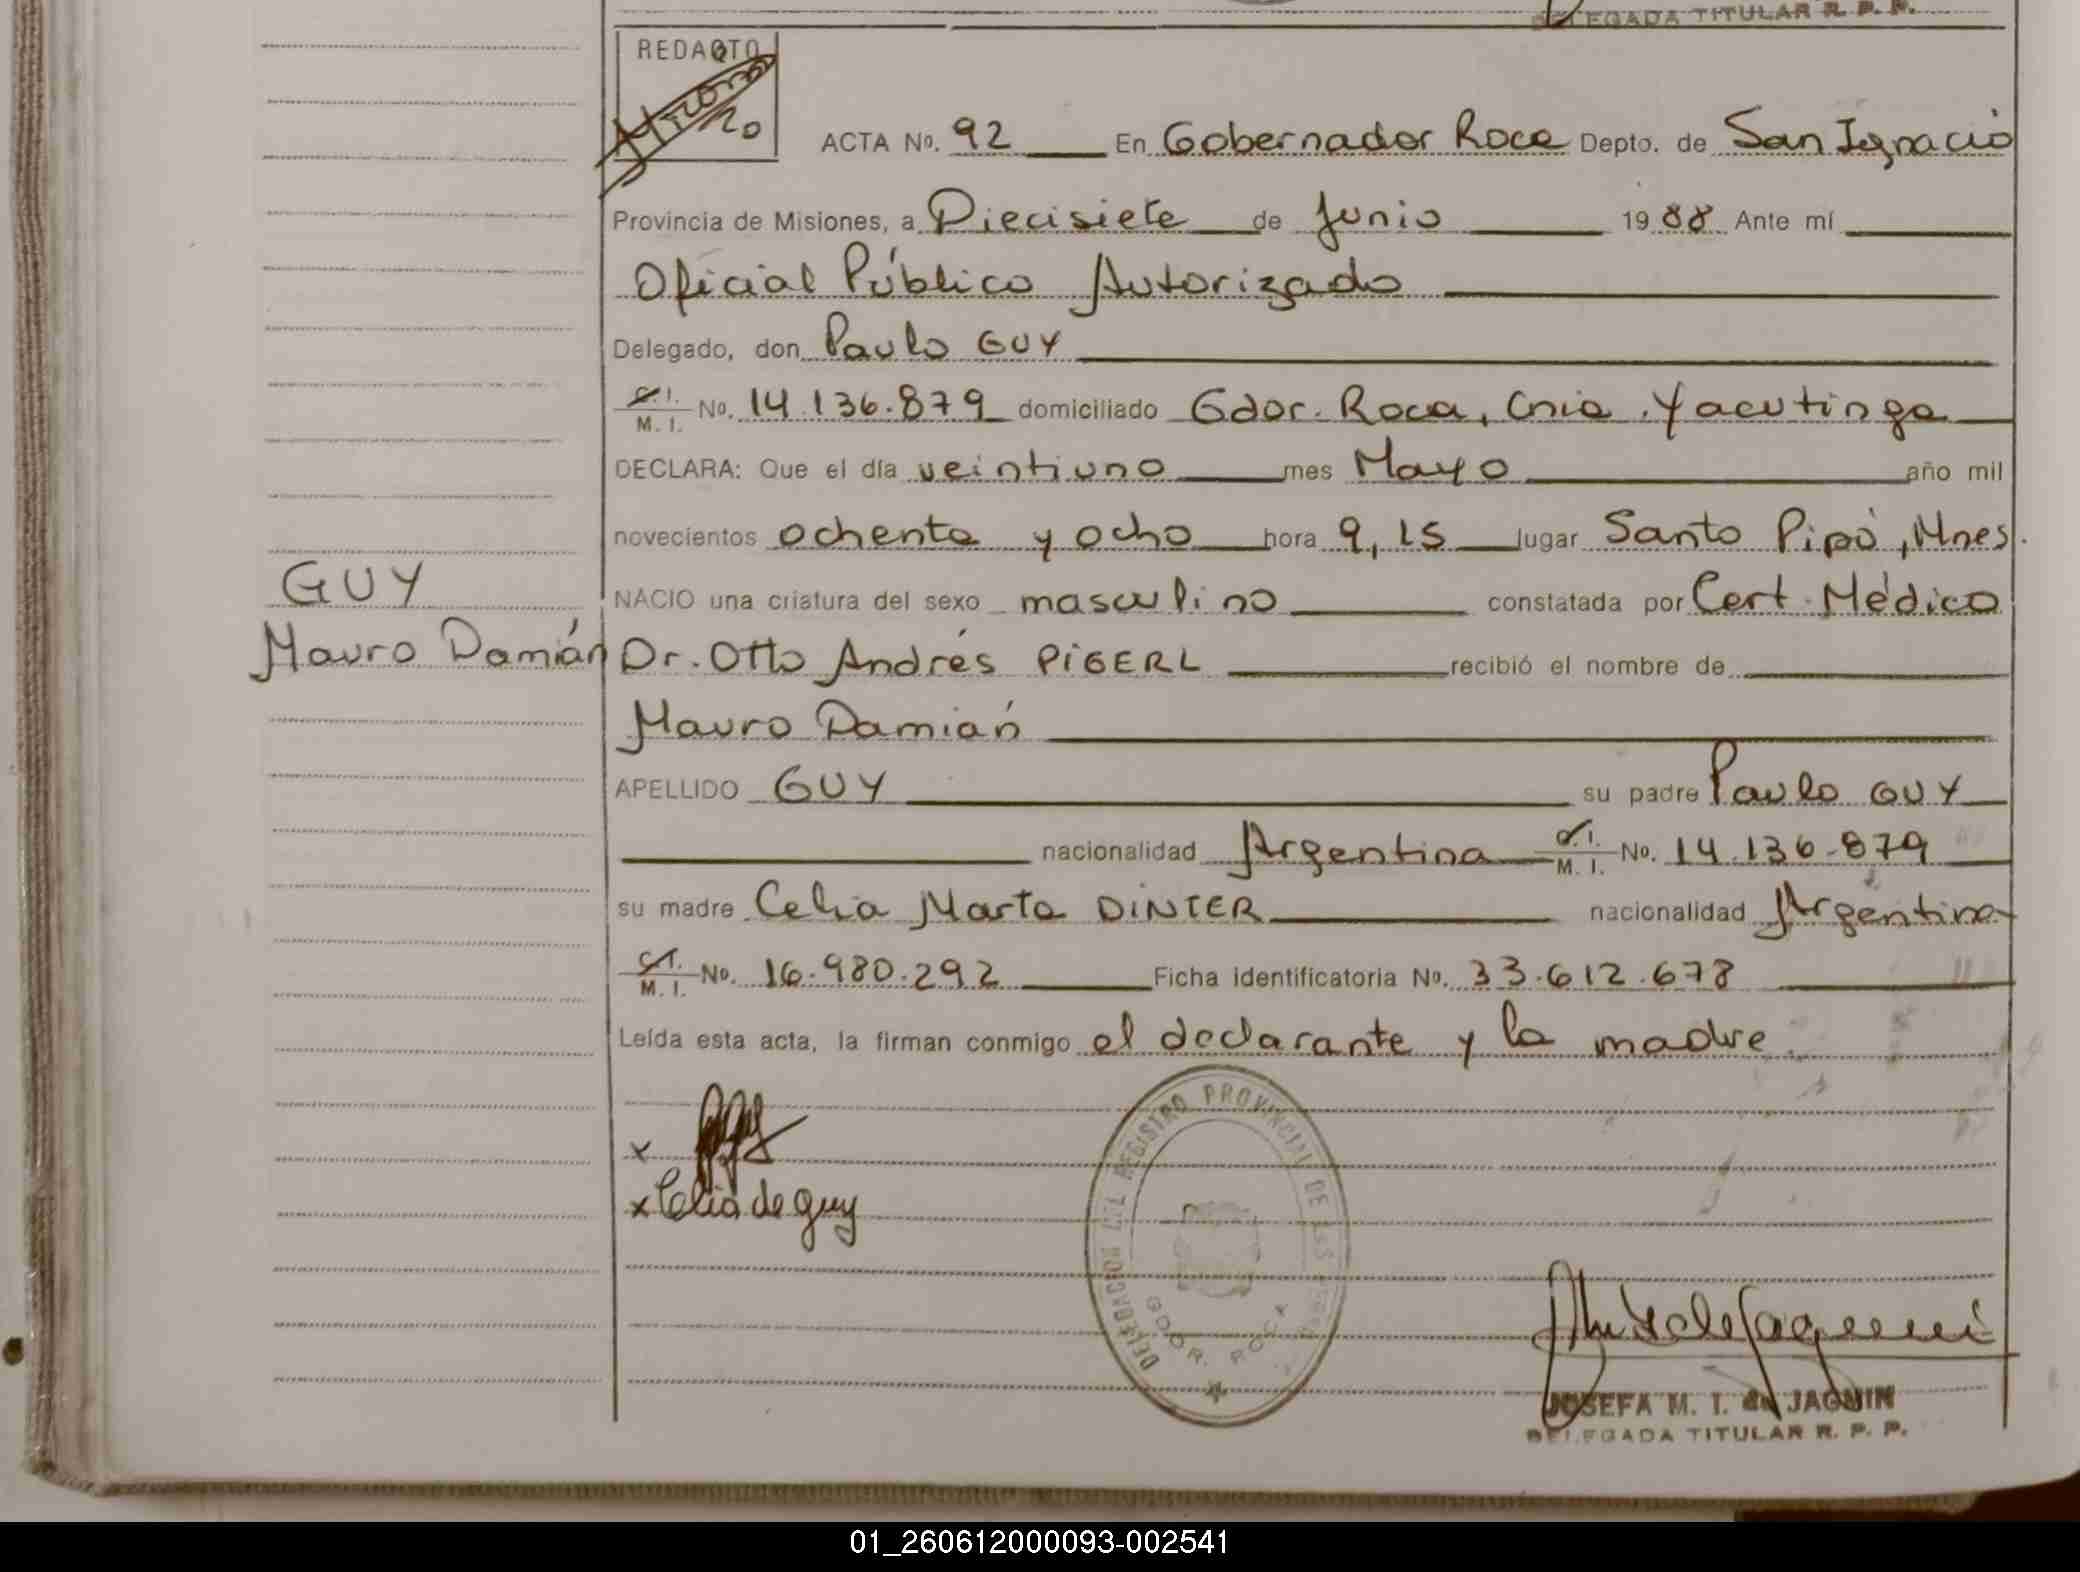 DELEGADA TITULAR R. P. P.
REDACTO
ACTA No. 92 En Gobernador Roca Depto. de San Ignacio
Provincia de Misiones, a Diecisiete de Junio 1988 Ante mí
Oficial Público Autorizado
Delegado, don Paulo GUY
C.I. M. I. No. 14.136.879 domiciliado Gdor. Roca, Cnia. Yacutinga
DECLARA: Que el día veintiuno mes Mayo año mil
novecientos ochenta y ocho hora 9,15 lugar Santo Pipó, Mnes.
GUY
NACIO una criatura del sexo masculino constatada por Cert. Médico
Mauro Damián
Dr. Otto Andrés PIGERL recibió el nombre de
Mauro Damián
APELLIDO GUY su padre Paulo GUY
nacionalidad Argentina C.I. M. I. No. 14.136.879
su madre Celia Marta DINTER nacionalidad Argentina
C.I. M. I. No. 16.980.292 Ficha identificatoria No. 33.612.678
Leída esta acta, la firman conmigo el declarante y la madre.
x
x Celia de guy
DELEGACION DEL REGISTRO PROVINCIAL DE LAS
GDOR. ROCA
JOSEFA M. I. de JAQUIN
DELEGADA TITULAR R. P. P.
01_260612000093-002541